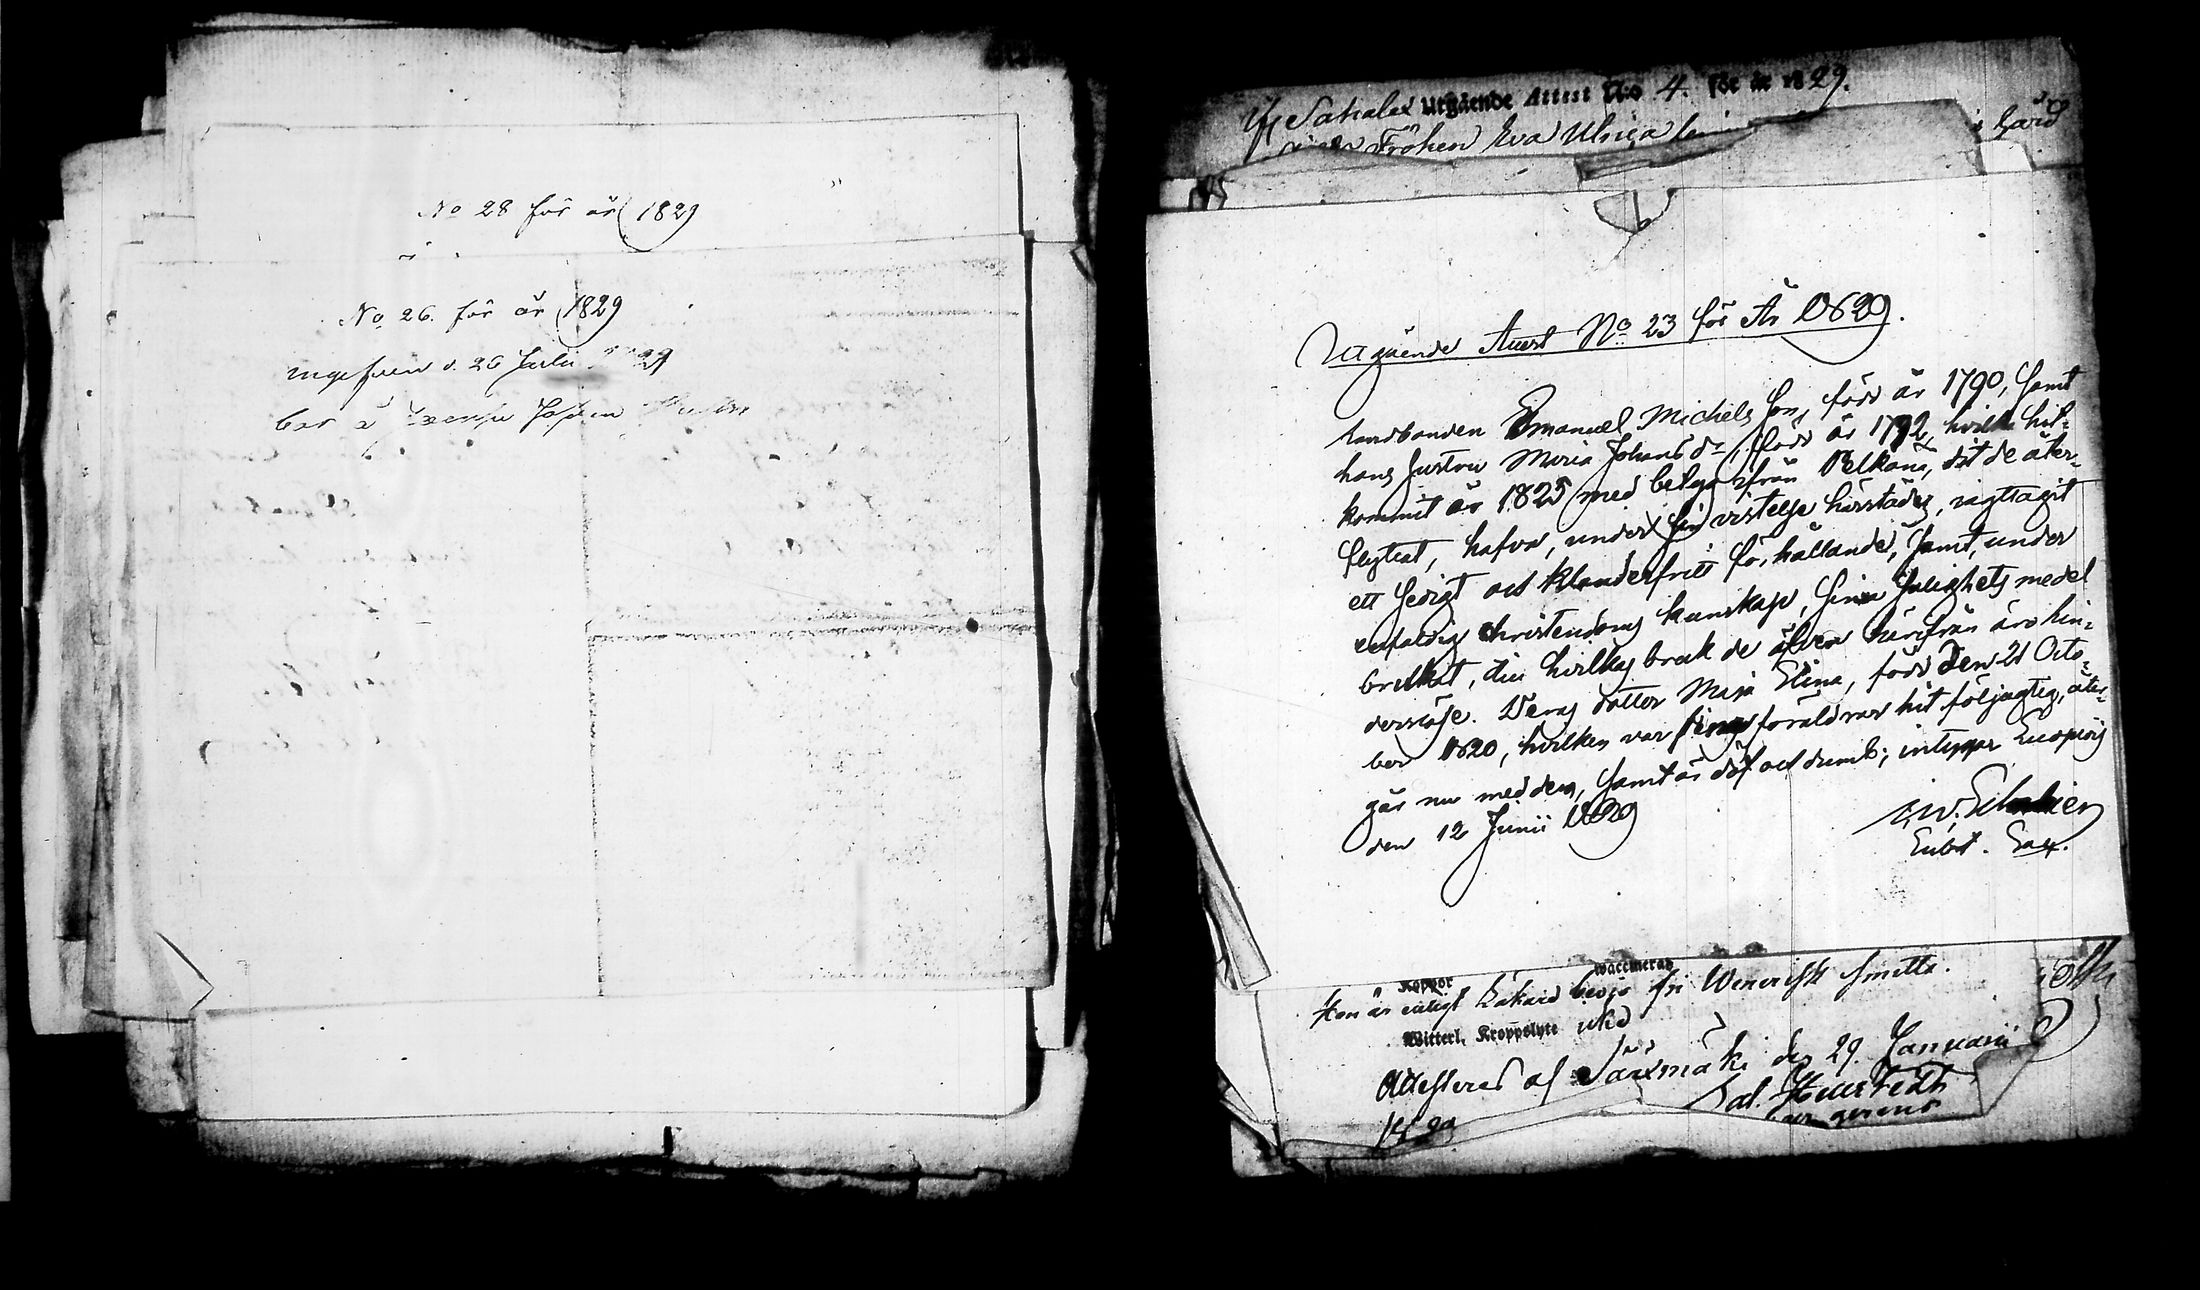 No 28 för år 1829
No 26. för år 1829
d. 26 Julii 1829
Sahalax Utgående Attest N:o 4. för år 1829.
Fröken Eva Ulrica
gård
Utgående Attest No 23 för År 1829.
Landbonden Emanuel Michels Son, född år 1790, samt
hans hustru Maria Johans dr, född år 1792, hvilka hit-
kommit år 1825 med betyg från Pelkäne, dit de åter-
flyttat, hafva, under sin vistelse härstädes, iagttagit
ett sedigt och klanderfritt förhållande, samt, under
enfaldig Christendoms kunskap, sina salighets medel
brukat, till hvilkas bruk de äfven härifrån äro hin-
derslöse. Deras dotter Maja Elina, född den 21 Octo-
ber 1820, hvilken var sina föräldrar hit följagtig, åter-
går nu med dem, samt är döf och dumb; intygar
den 12 Junii 1829
Subst.
Koppor waccinerad
Hon är enligt Läkare bevis fri Venerisk smitta.
Witterl. Kroppslyte utan
Attesteras af Sääxmäki den 29. Januarii
1829